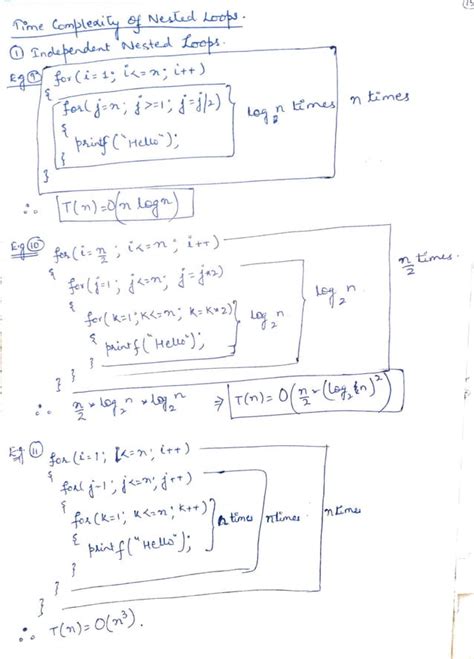 (15
Time Complexity of Nested Loops.
① Independent Nested Loops.
Eg ⑨ for(i=1; i<=n; i++)
{
for(j=n; j>=1; j=j/2)
{
printf("Hello");
}
}
log₂n times
n times
∴ T(n)=O(n logn)
Eg ⑩ for(i=n/2; i<=n; i++)
{
for(j=1; j<=n; j=j*2)
{
for(k=1; k<=n; k=k*2)
{
printf("Hello");
}
}
}
log₂n
log₂n
n/2 times.
∴ n/2 * log₂n * log₂n ⇒ T(n)=O(n/2 * (log₂n)²)
Eg ⑪ for(i=1; i<=n; i++)
{
for(j-1; j<=n; j++)
{
for(k=1; k<=n; k++)
{
printf("Hello");
}
}
}
n times
n times
n times
∴ T(n)=O(n³).